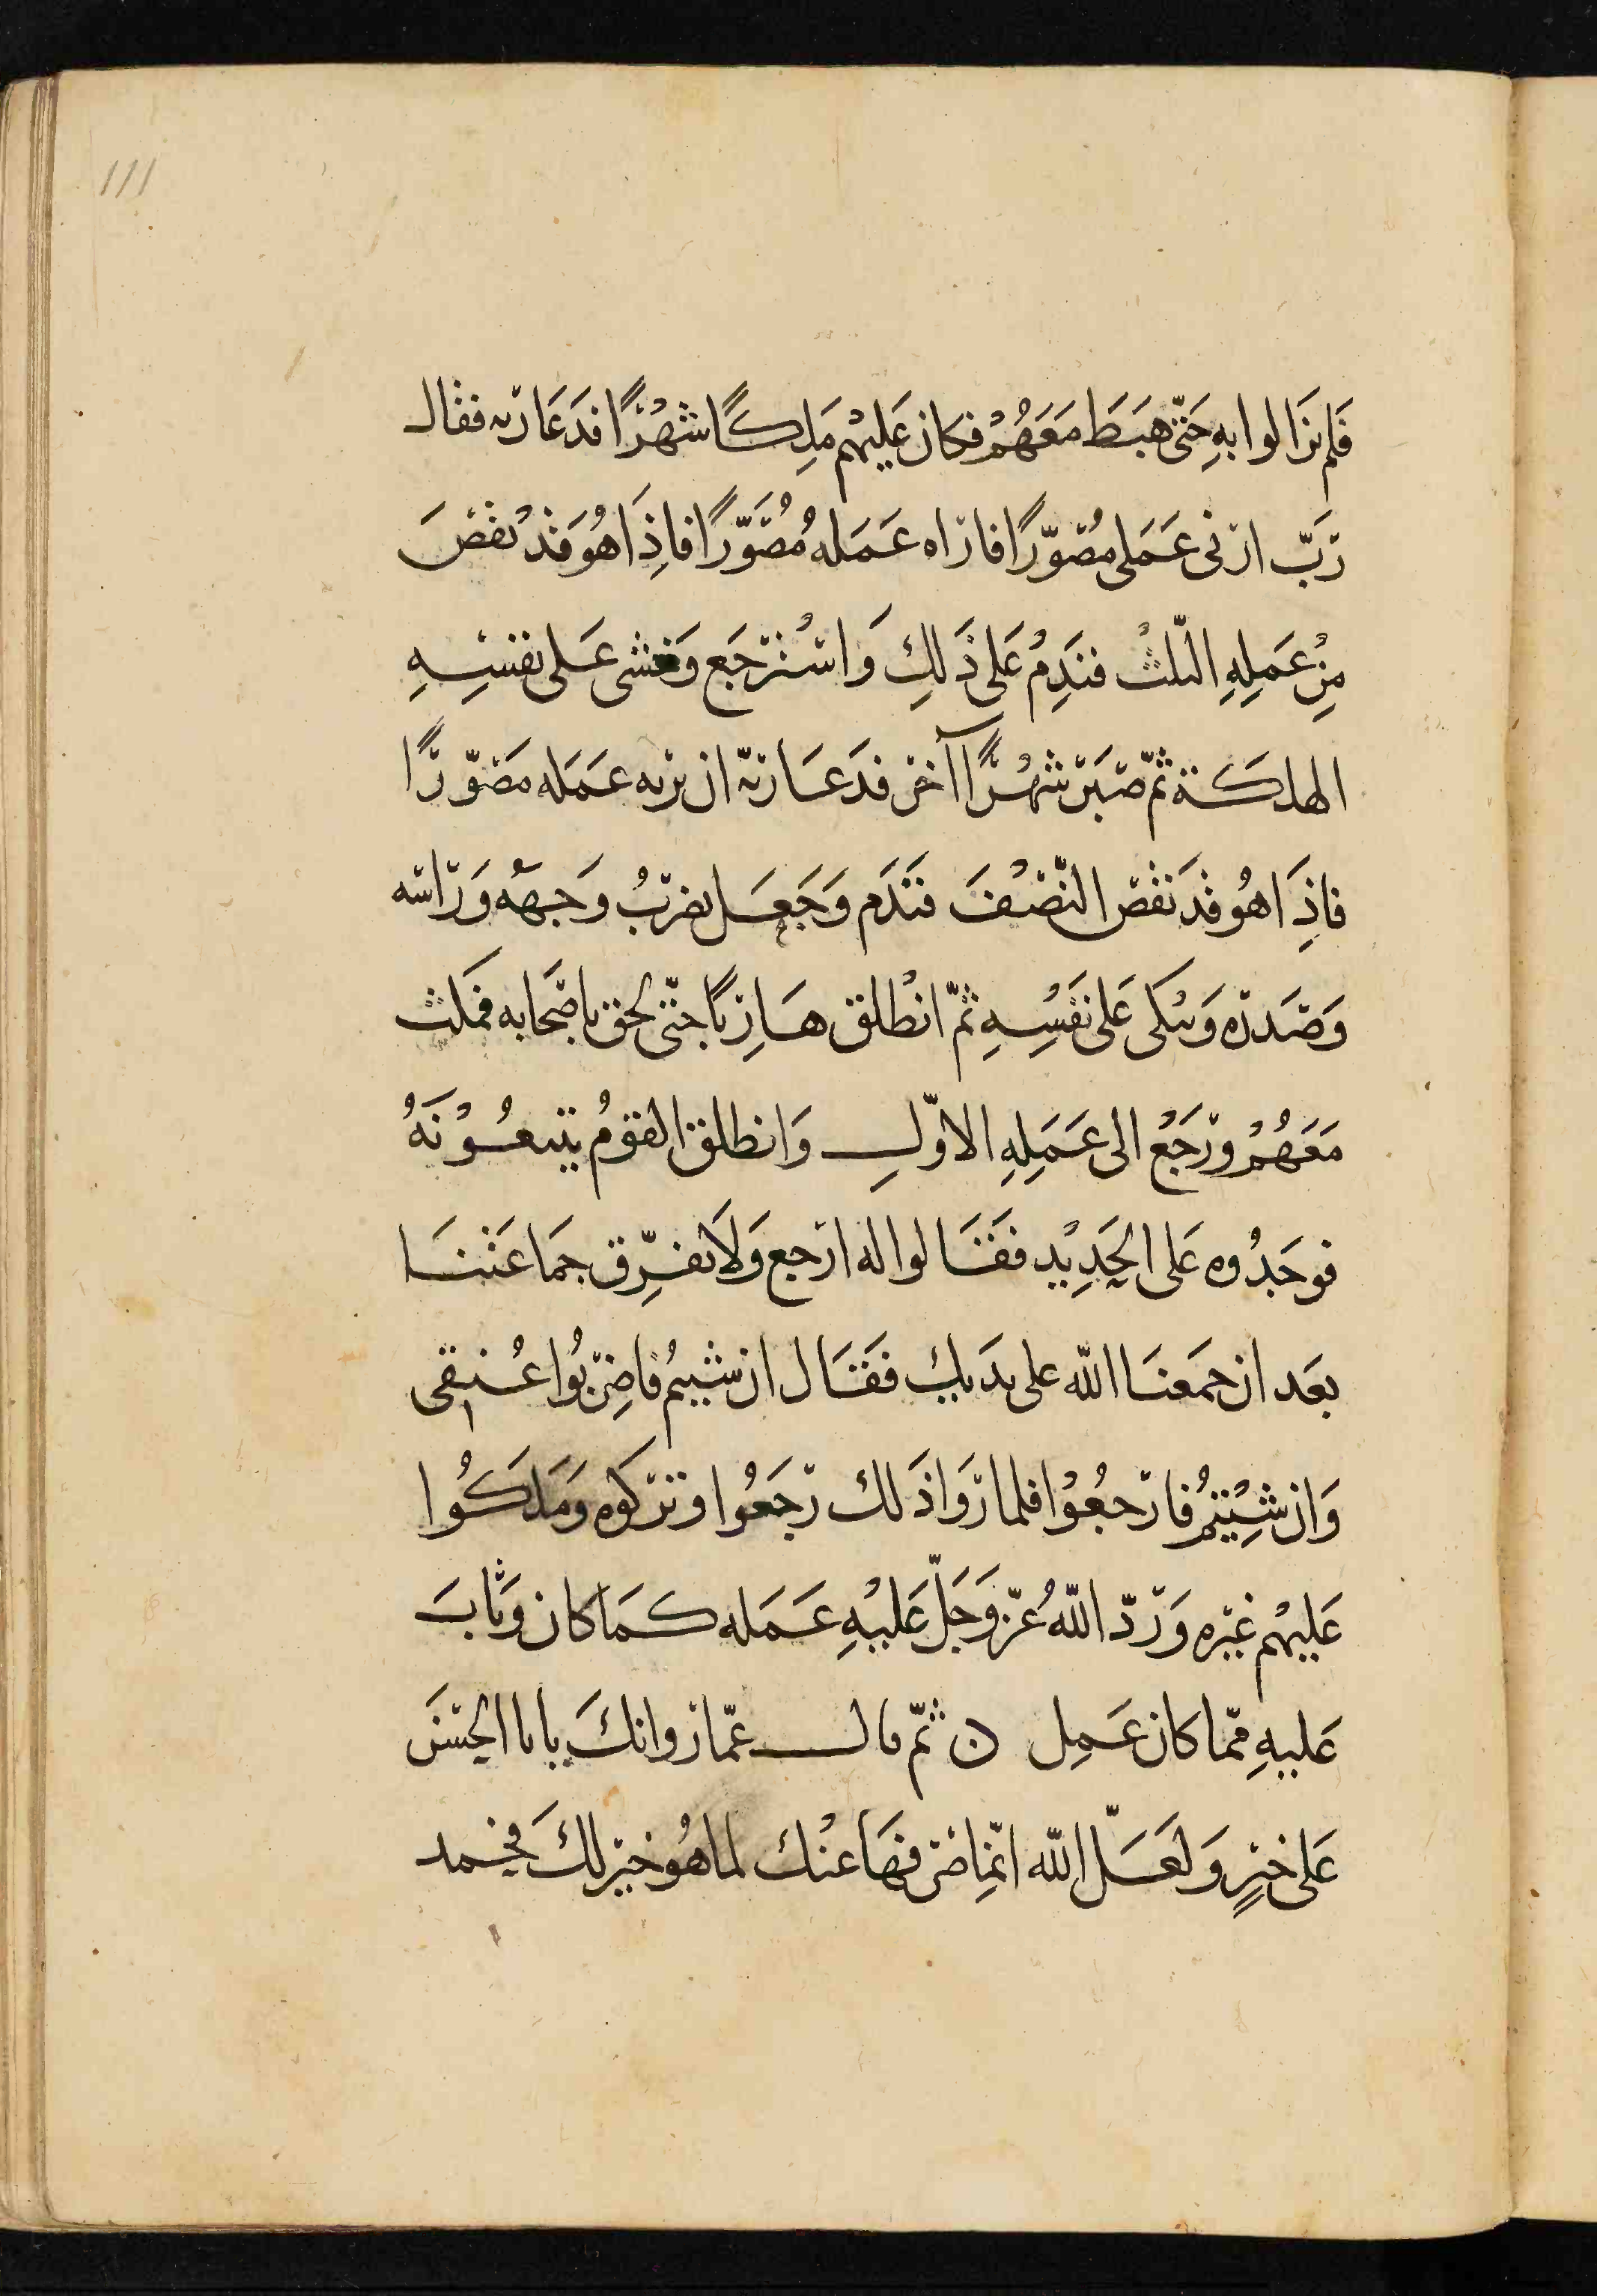 111
فَلم يزَالوا بهِ حَتّى هبَطَ مَعَهُمْ فكان عَليهْم مَلِكًا شهْرًا فدَعَا ربه فقال
رَبّ ارنى عَمَلى مُصَوّرًا فاراه عَمَله مُصَوّرًا فاذِا هُو قد نُقصَ
مِنْ عَمَلِهِ الثلثْ فندِمُ عَلى ذَلكِ وَاسْترجَع وَخشى عَلى نفسِهِ
الهلكَة ثمّ صَبَر شهْرًا آخر فدَعَا ربّه ان يريه عَمَله مصَوّرًا
فاذَا هُو قد نقصَ النّصْفَ فنَدَم وَجَعَل يضربُ وَجههُ وَراسه
وَصَدره وَيبْكى عَلى نفَسْهِ ثمّ انْطلق هَاربًا حتّى لحق باصْحابه فمكث
مَعَهُمْ ورَجَعْ الى عَمَلِهِ الاوّلِ وَانطلق القومُ يتبعُوْنَهُ
فوجَدُوه عَلى الجَدِيْد فقَالوا له ارجع وَلَا تفرّق جمَاعَتنَا
بعَد ان جمَعنَا الله على يدَيك فقَال ان شيتمُ فاضِربُوا عُنقى
وَان شِيْتمُ فارجعُوْا فلما رَوا ذَلك رجَعُوا وتركوه وَمَلكُوا
عَليهْم غيره وَردّ اللهُ عزّ وَجَلّ عَليْهِ عَمَله كمَا كان وَتابَ
عَليهِ ممّا كان عَمِل ن ثمّ قال عمّار وانكَ يا با الحسَن
عَلى خيرٍ وَلعَلّ الله انمّا صَرفهَا عنْك لما هُو خير لكَ فحمد